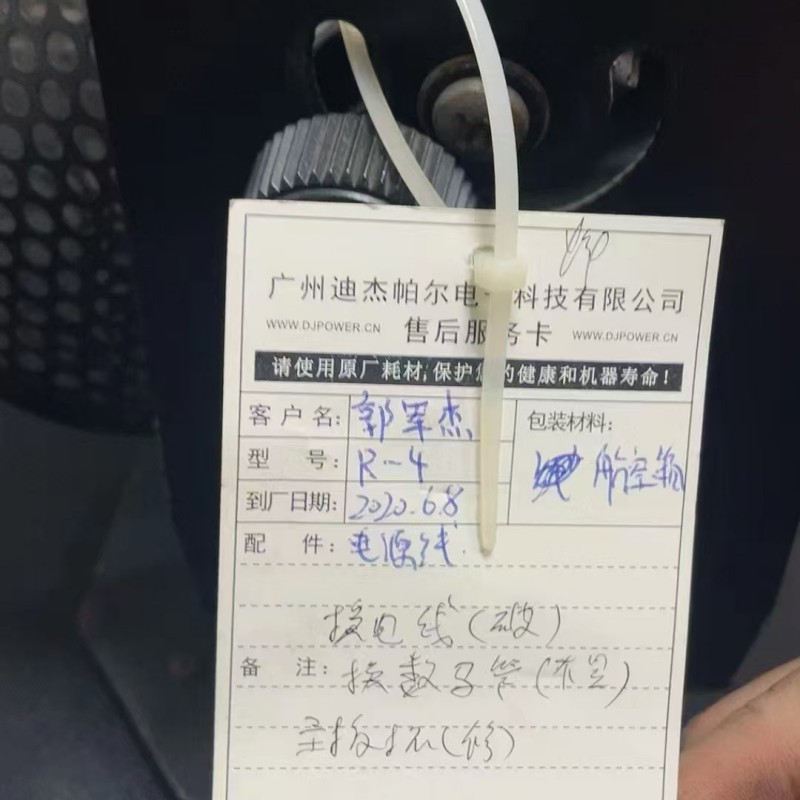 广州迪杰帕尔电子科技有限公司
WWW.DJPOWER.CN 售后服务卡 WWW.DJPOWER.CN
请使用原厂耗材,保护您的健康和机器寿命!
客户名: 郭军杰
包装材料:
航空箱
型号: R-4
到厂日期: 2020.6.8
配件: 电源线
换电线(破)
备注: 换数码管(不显)
主板坏(修)